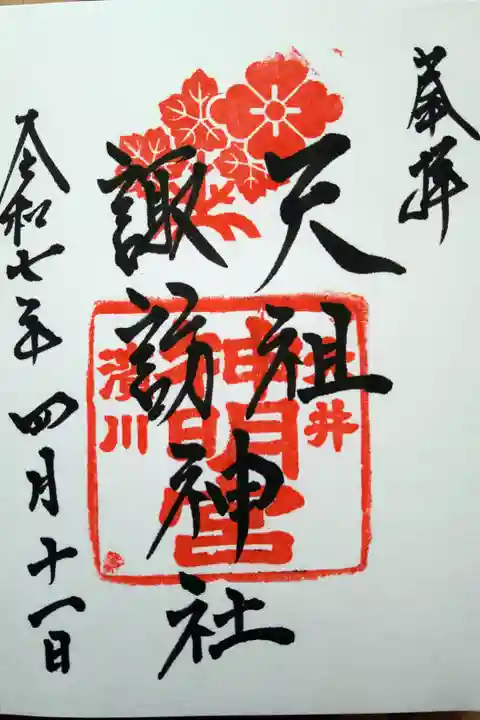 奉拝
天祖
諏訪神社
井
神明宮
濱川
令和七年四月十一日